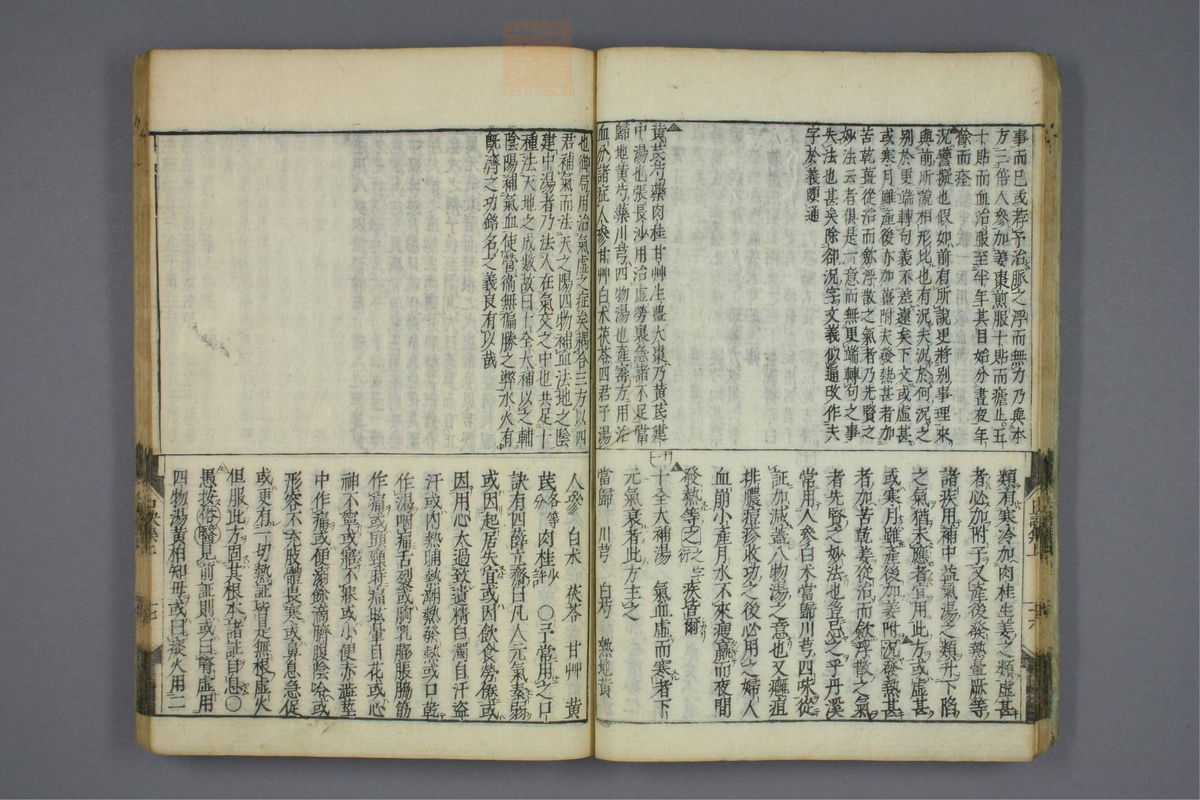 事而已或若予治脈之浮而無力乃與本
方三倍人參加姜棗煎服十貼而瘡止五
十貼而血治服至半年其目始分晝夜年
餘而痊
況譬擬也假如前有所說更將別事理來
與前所說相形比也有況夫況於何況之
別於更端轉句義不差遠矣下文或虛甚
或寒月雖產後亦加薑附夫發熱甚者加
苦乾薑從治而歛浮散之氣者乃先賢之
妙法云者俱是一意而無更端轉句之事
失法也甚矣除卻況字文義似通改作夫
字於義頗通
黃芪芍藥肉桂甘艸生薑大棗乃黃芪建
中湯也張長沙用治虛勞裏急諸不足當
歸地黃芍藥川芎四物湯也產寶方用治
血分諸症人參甘艸白朮茯苓四君子湯
類有寒冷加肉桂生姜之類虛甚
者必加附子又產後發熱量厥等
諸疾用補中益氣湯之類升下陷
之氣猶未應者宜用此方或虛甚
或寒月雖產後加姜附況發熱甚
者加苦乾姜從治而歛浮散之氣
者先賢之妙法也岂忌之乎丹溪
常用人參白朮當歸川芎四味從
証加減蓋八物湯之意也又癰疽
排膿痘疹收功之後必用之婦人
血崩小產月水不來瘦羸而夜間
發熱等之疾皆爾
十全大補湯 氣血虛而寒者下
元氣衰者此方主之
當歸 川芎 白芍 熟地黃
也御局用治氣虛之症矣耦合三方以四
君補氣而法天之陽四物補血法地之陰
建中湯者乃法人在氣交之中也共足十
種法天地之成數故曰十全大補以之輔
陰陽補氣血使營衛無偏勝之弊水火有
旣濟之功銘名之義良有以哉
人參 白朮 茯苓 甘艸 黃
芪各等分 肉桂少許 ○予常用之口
訣有四辭立齋曰凡人元氣素弱
或因起居失宜或因飲食勞倦或
因用心太過致遺精白濁自汗盜
汗或內熱晡熱潮熱發熱或口乾
作渴咽痛舌裂或胸乳膨脹脇筋
作痛或頭頸時痛眩暈目花或心
神不寧或寤不寐或小便赤澁莖
中作痛或便溺餘滴臍腹陰冷或
形容不充肢體畏寒或鼻息急促
或更有一切熱証皆是無根虛火
但服此方固其根本諸証自息○
愚按俗醫見前証則或曰腎虛用
四物湯黃柏知母或曰痰火用二